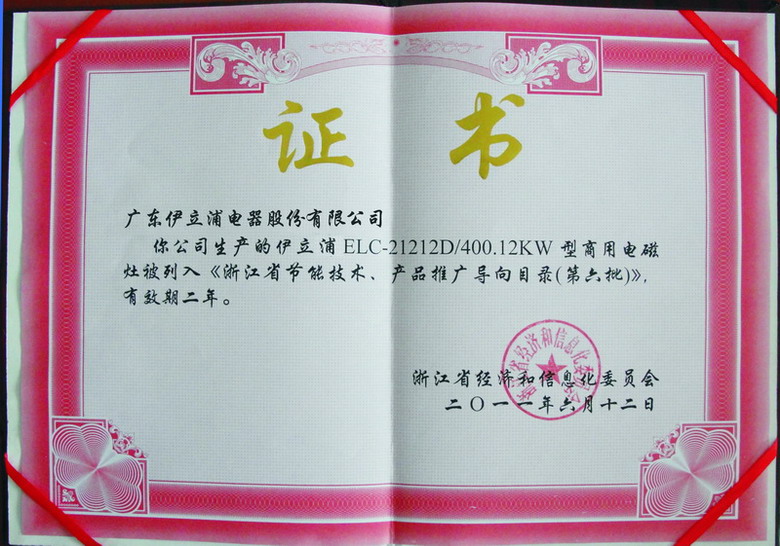 证 书
广东伊立浦电器股份有限公司
你公司生产的伊立浦 ELC-21212D/400.12KW 型商用电磁
灶被列入《浙江省节能技术、产品推广导向目录(第六批)》,
有效期二年。
浙江省经济和信息化委员会
二〇一一年六月十二日
浙江省经济和信息化委员会